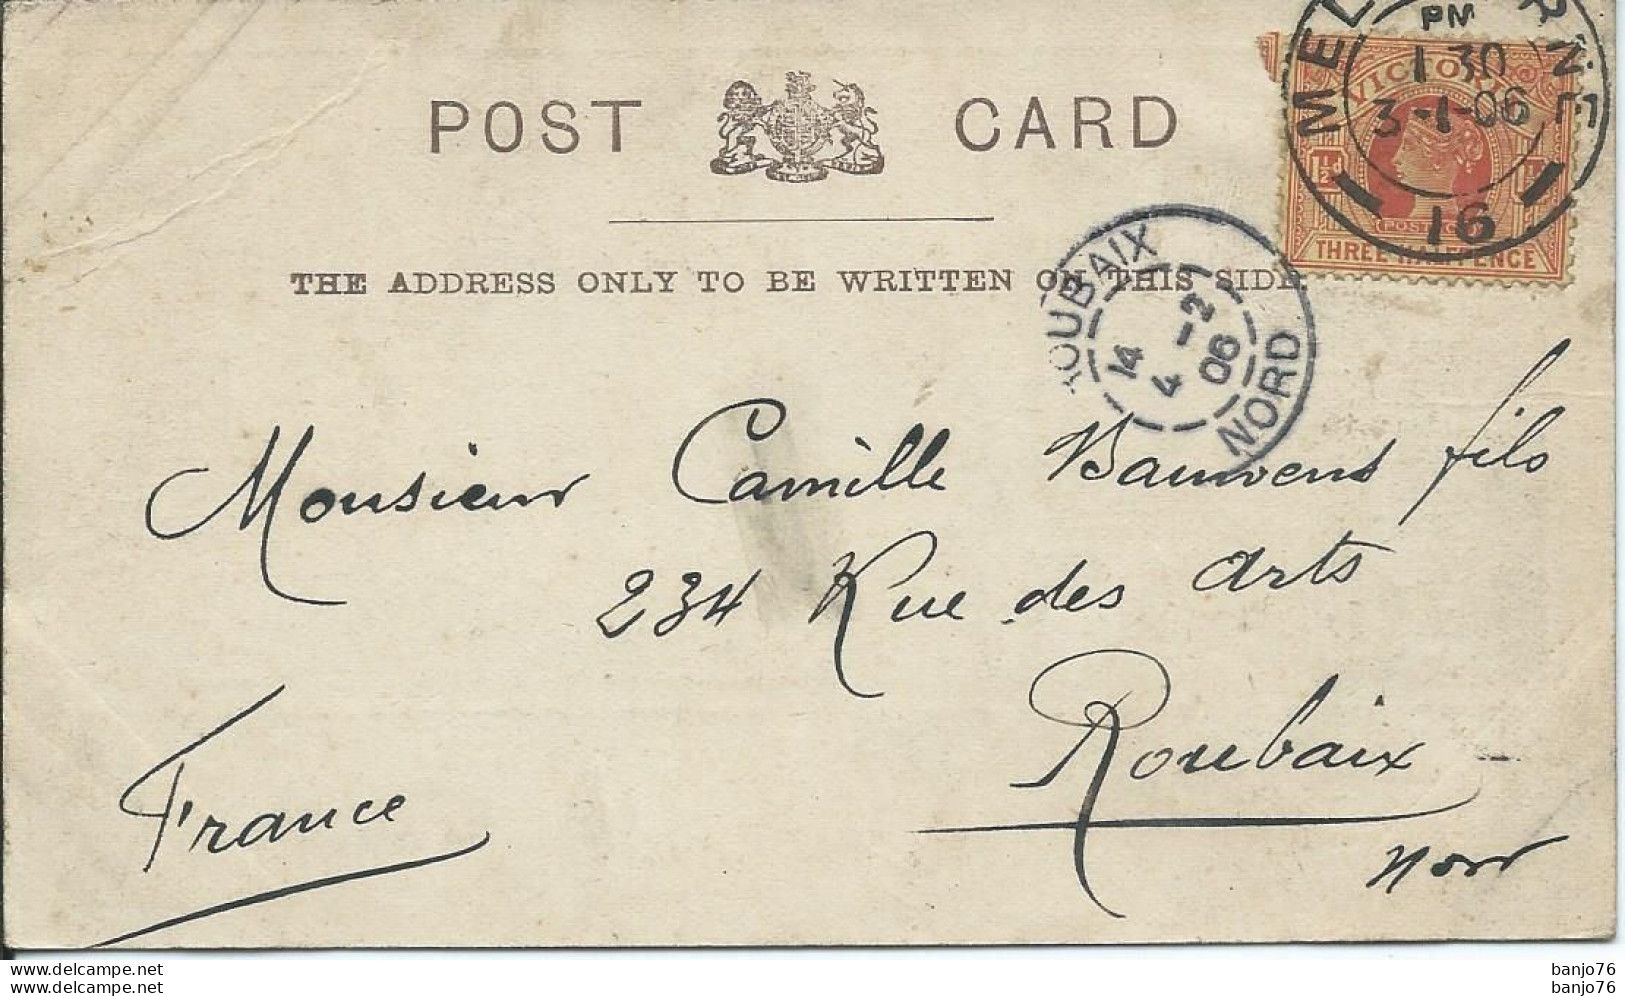 POST CARD
THE ADDRESS ONLY TO BE WRITTEN ON THIS SIDE.
PM
1 30
3-1-06
16
VICTOR
1½d
THREE HALFPENCE
ROUBAIX
14
4 -2
06
NORD
Monsieur Camille Bauwens fils
234 Rue des Arts
Roubaix
Nord
France
www.delcampe.net
www.delcampe.net
banjo76
banjo76